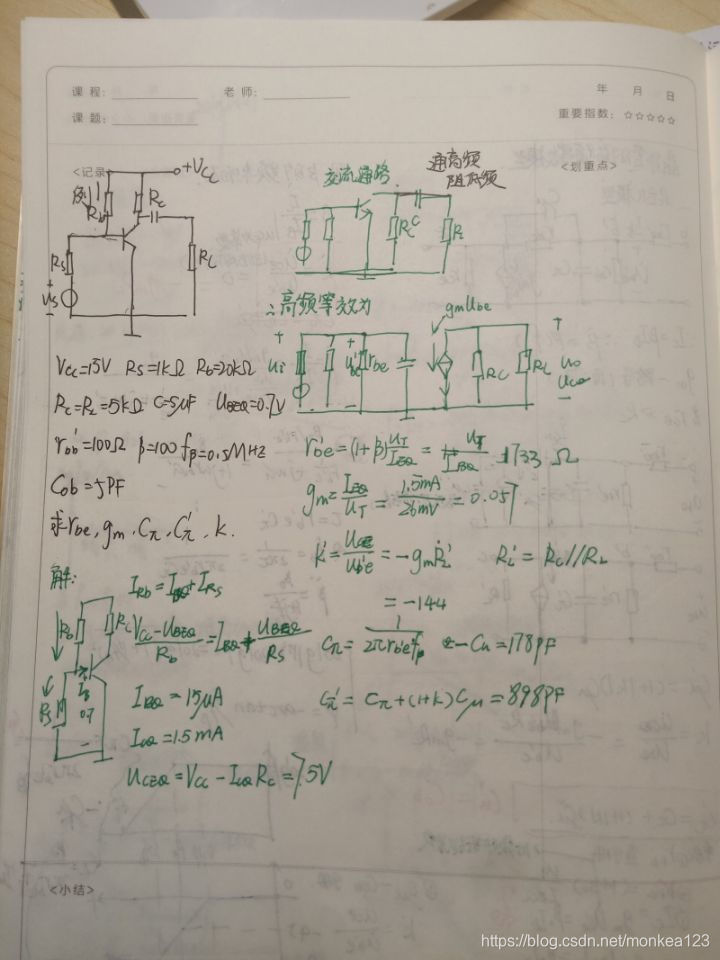 课程:
老师:
年 月 日
课题:
重要指数: ☆☆☆☆☆
<记录>
<划重点>
+Vcc
Rb
Rc
Rs
Us
+
−
RL
交流通路
通高频
阻低频
Rc
RL
∴高频等效为
gmUbe
+
ui
rbe
Rc
RL
uo
uce
−
Vcc=15V Rs=1kΩ Rb=20kΩ
Rc=RL=5kΩ C=5μF UBEQ=0.7V
rbb'=100Ω β=100 fβ=0.5MHz
Cob=5PF
求rbe, gm, Cπ, Cπ', k.
rb'e=(1+β)UT/IEQ=UT/IBQ=1733 Ω
gm=IEQ/UT=1.5mA/26mV=0.057
k=Uce/Ub'e=-gmRL' RL'=Rc//RL
=-144
Cπ=1/2πrb'efβ -Cμ=178PF
Cπ'=Cπ+(1+k)Cμ=898PF
解:
IRb=IBQ+IRs
Vcc-UBEQ/Rb=IBQ+UBEQ/Rs
IBQ=15μA
ICQ=1.5mA
UCEQ=Vcc-ICQRc=7.5V
Rb
Rc
Rs
IB
0.7
−
<小结>
https://blog.csdn.net/monkea123